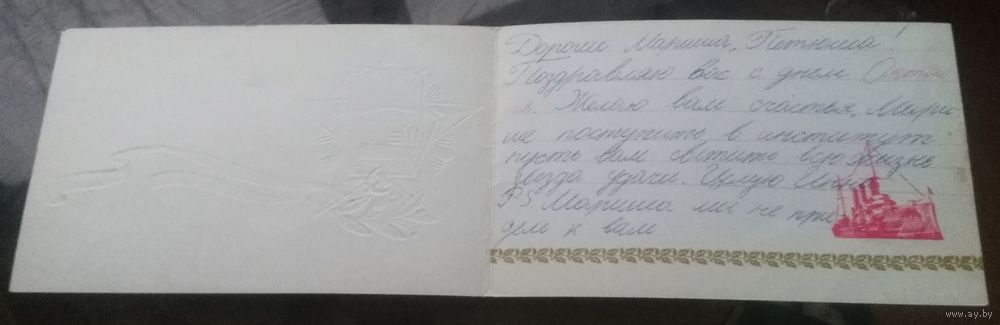 Дорогие Мариша, Петюша!
Поздравляю вас с днем Октяб
ря. Желаю вам счастья, Мари-
ше поступить в институт
пусть вам светит всю жизнь
звезда удачи. Целую
PS Мариша мы не при
дем к вам.
www.ay.by